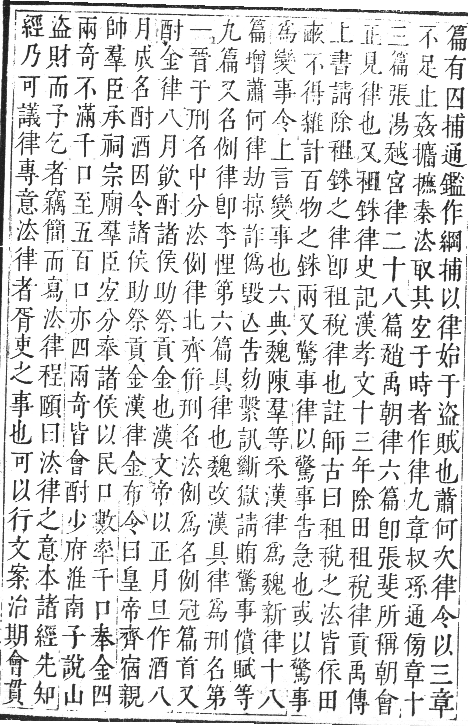 篇有囚捕通鑑作綱捕以律始于盜賊也蕭何次律令以三章
不足止姦攟摭秦法取其宐于時者作律九章叔孫通傍章十
三篇張湯越宮律二十八篇趙禹朝律六篇卽張斐所稱朝會
正見律也又租銖律史記漢孝文十三年除田租稅律貢禹傳
上書請除租銖之律卽租稅律也註師古曰租稅之法皆依田
畝不得雜計百物之銖兩又驚事律以驚事告急也或以驚事
爲變事令上言變事也六典魏陳羣等采漢律爲魏新律十八
篇增蕭何律劫掠詐僞毀亾告劾繫訊斷獄請賕驚事償贓等
九篇又名例律卽李悝第六篇具律也魏改漢具律爲刑名第
一晉于刑名中分法例律北齊倂刑名法例爲名例冠篇首又
酎金律八月飮酎諸侯助祭貢金也漢文帝以正月旦作酒八
月成名酎酒因令諸侯助祭貢金漢律金布令曰皇帝齊宿親
帥羣臣承祠宗廟羣臣宐分奉諸侯以民口數率千口奉金四
兩奇不滿千口至五百口亦四兩奇皆會酎少府淮南子說山
盜財而子乞者竊簡而寫法律程頤曰法律之意本諸經先知
經乃可議律專意法律者胥吏之事也可以行文案治期會貫